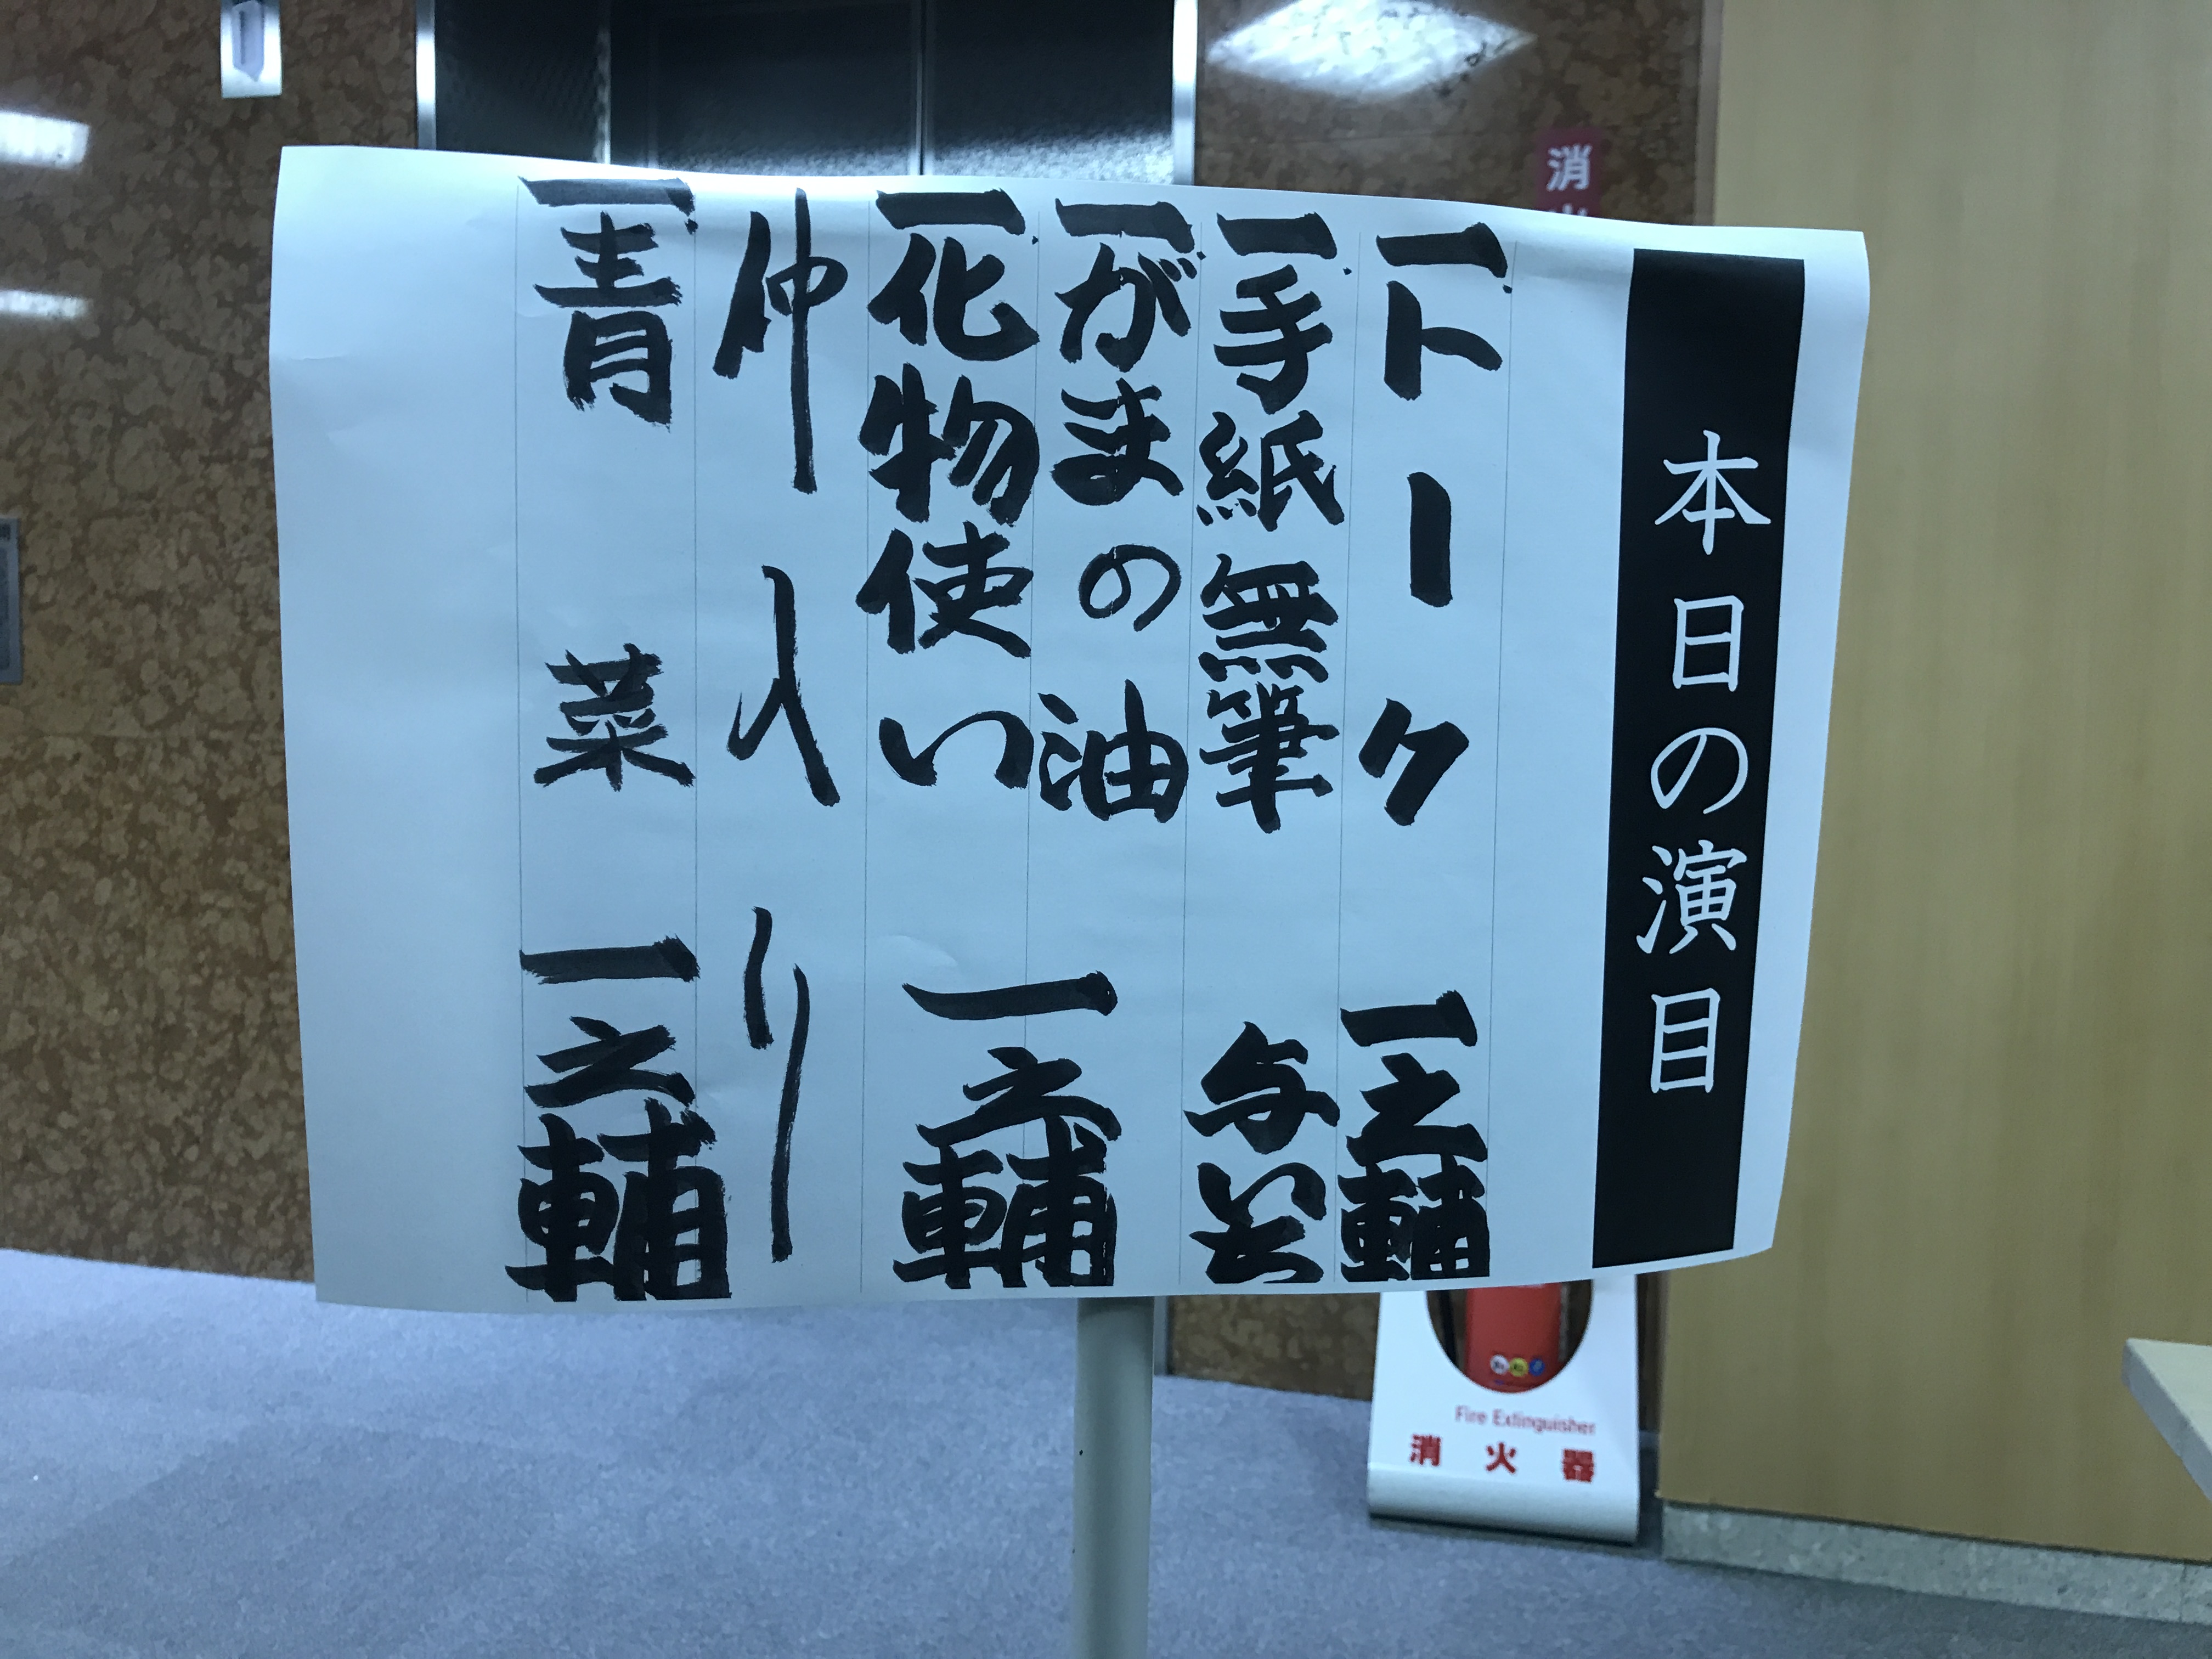 本日の演目
一、トーク 一之輔
一、手紙無筆 与いち
一、がまの油
一、化物使い 一之輔
仲入り
一、青菜 一之輔
消
Fire Extinguisher
消火器